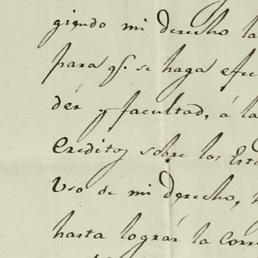 giendo mi derecho la
para q.e se haga efe
dér y facultad, á la
Creditos sobre los Est
Uso de mi derecho,
hasta lograr la Corr